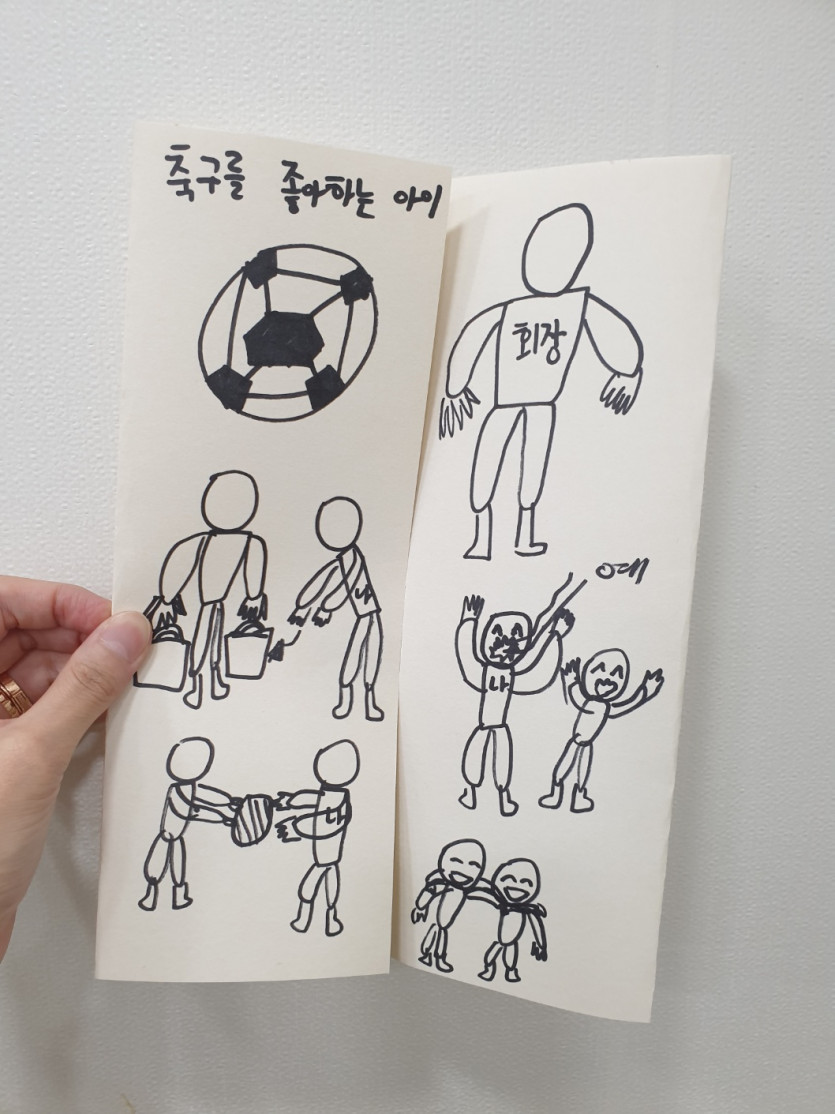 축구를 좋아하는 아이
나
나
회장
예
나